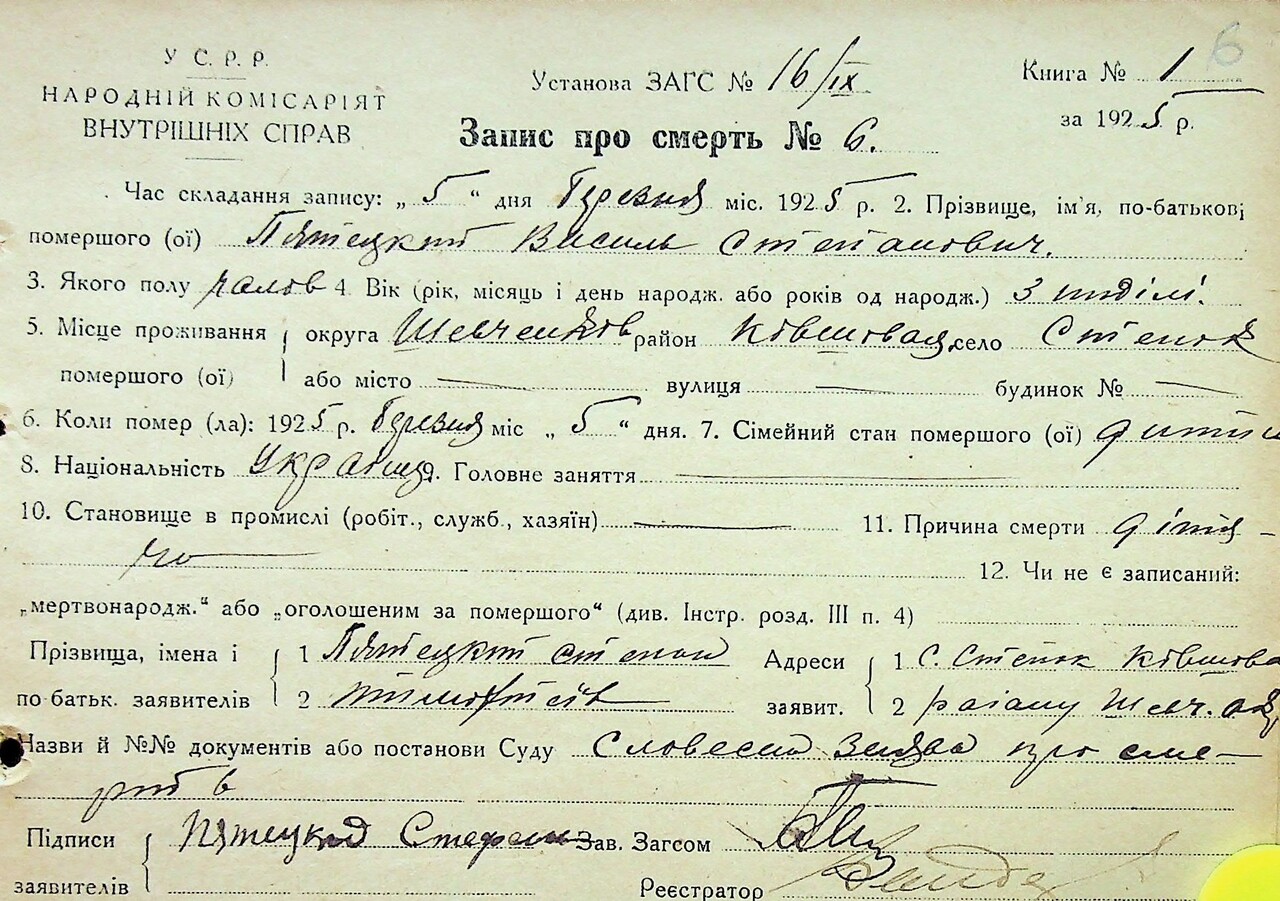 6
У С. Р. Р.
НАРОДНІЙ КОМІСАРІЯТ
ВНУТРІШНІХ СПРАВ
Установа ЗАГС № 16/IX
Книга № 1
за 1925 р.
Запис про смерть № 6.
Час складання запису: „ 5 “ дня Березня міс. 1925 р. 2. Прізвище, ім'я, по-батькові
помершого (ої) Пятецкий Василь Степанович.
3. Якого полу чолов 4. Вік (рік, місяць і день народж. або років од народж.) 3 неділі.
5. Місце проживання помершого (ої) округа Шевченків район Ківшовая село Степок
або місто — вулиця — будинок № —
6. Коли помер (ла): 1925 р. Березня міс „ 5 “ дня. 7. Сімейний стан помершого (ої) дитин
8. Національність Украінц 9. Головне заняття —
10. Становище в промислі (робіт., служб., хазяїн) — 11. Причина смерти дітя-
че — 12. Чи не є записаний:
„мертвонародж.“ або „оголошеним за померщого“ (див. Інстр. розд. III п. 4)
Прізвища, імена і 1 Пятецкий Степан Адреси 1 С. Степок Ківшова
по батьк. заявителів 2 Тимофтеїв заявит. 2 раіану Шевч. окр
Назви й №№ документів або постанови Суду Словесна Заява про сме-
рть
Підписи Пятецкий Стефан Зав. Загсом
заявителів Реєстратор